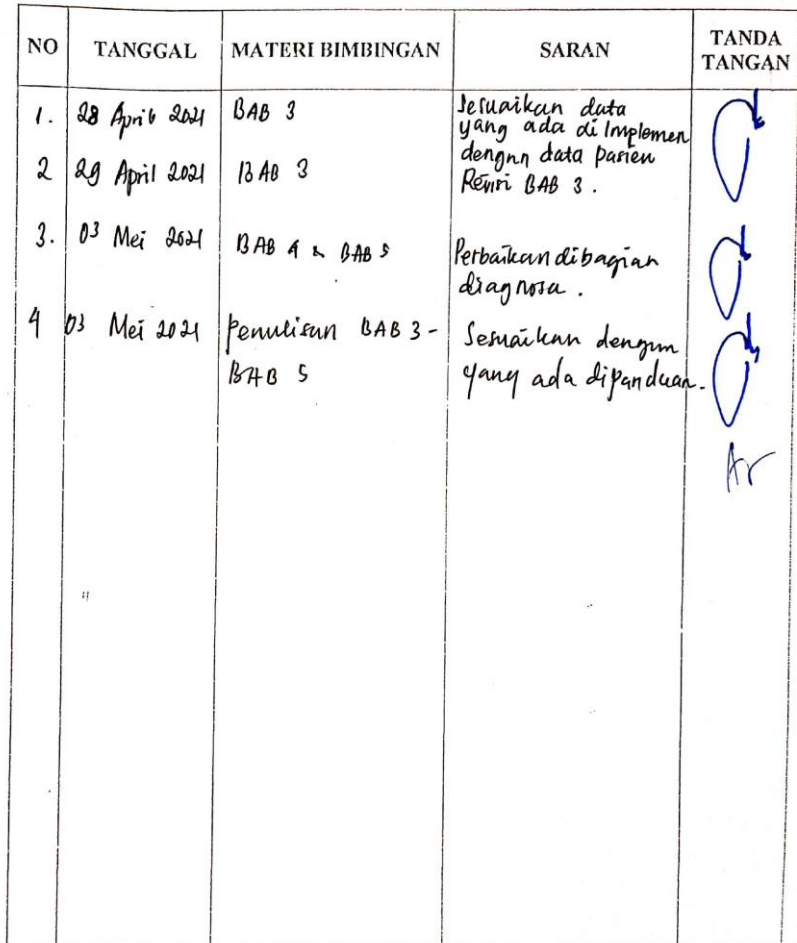 NO TANGGAL MATERI BIMBINGAN SARAN TANDA TANGAN
1. 28 April 2021 BAB 3 Sesuaikan data
yang ada di Implemen
dengan data pasien
2 29 April 2021 BAB 3 Revisi BAB 3.
3. 03 Mei 2021 BAB 4 & BAB 5 Perbaikan dibagian
diagnosa.
4 03 Mei 2021 Penulisan BAB 3 - Sesuaikan dengan
BAB 5 yang ada dipanduan.